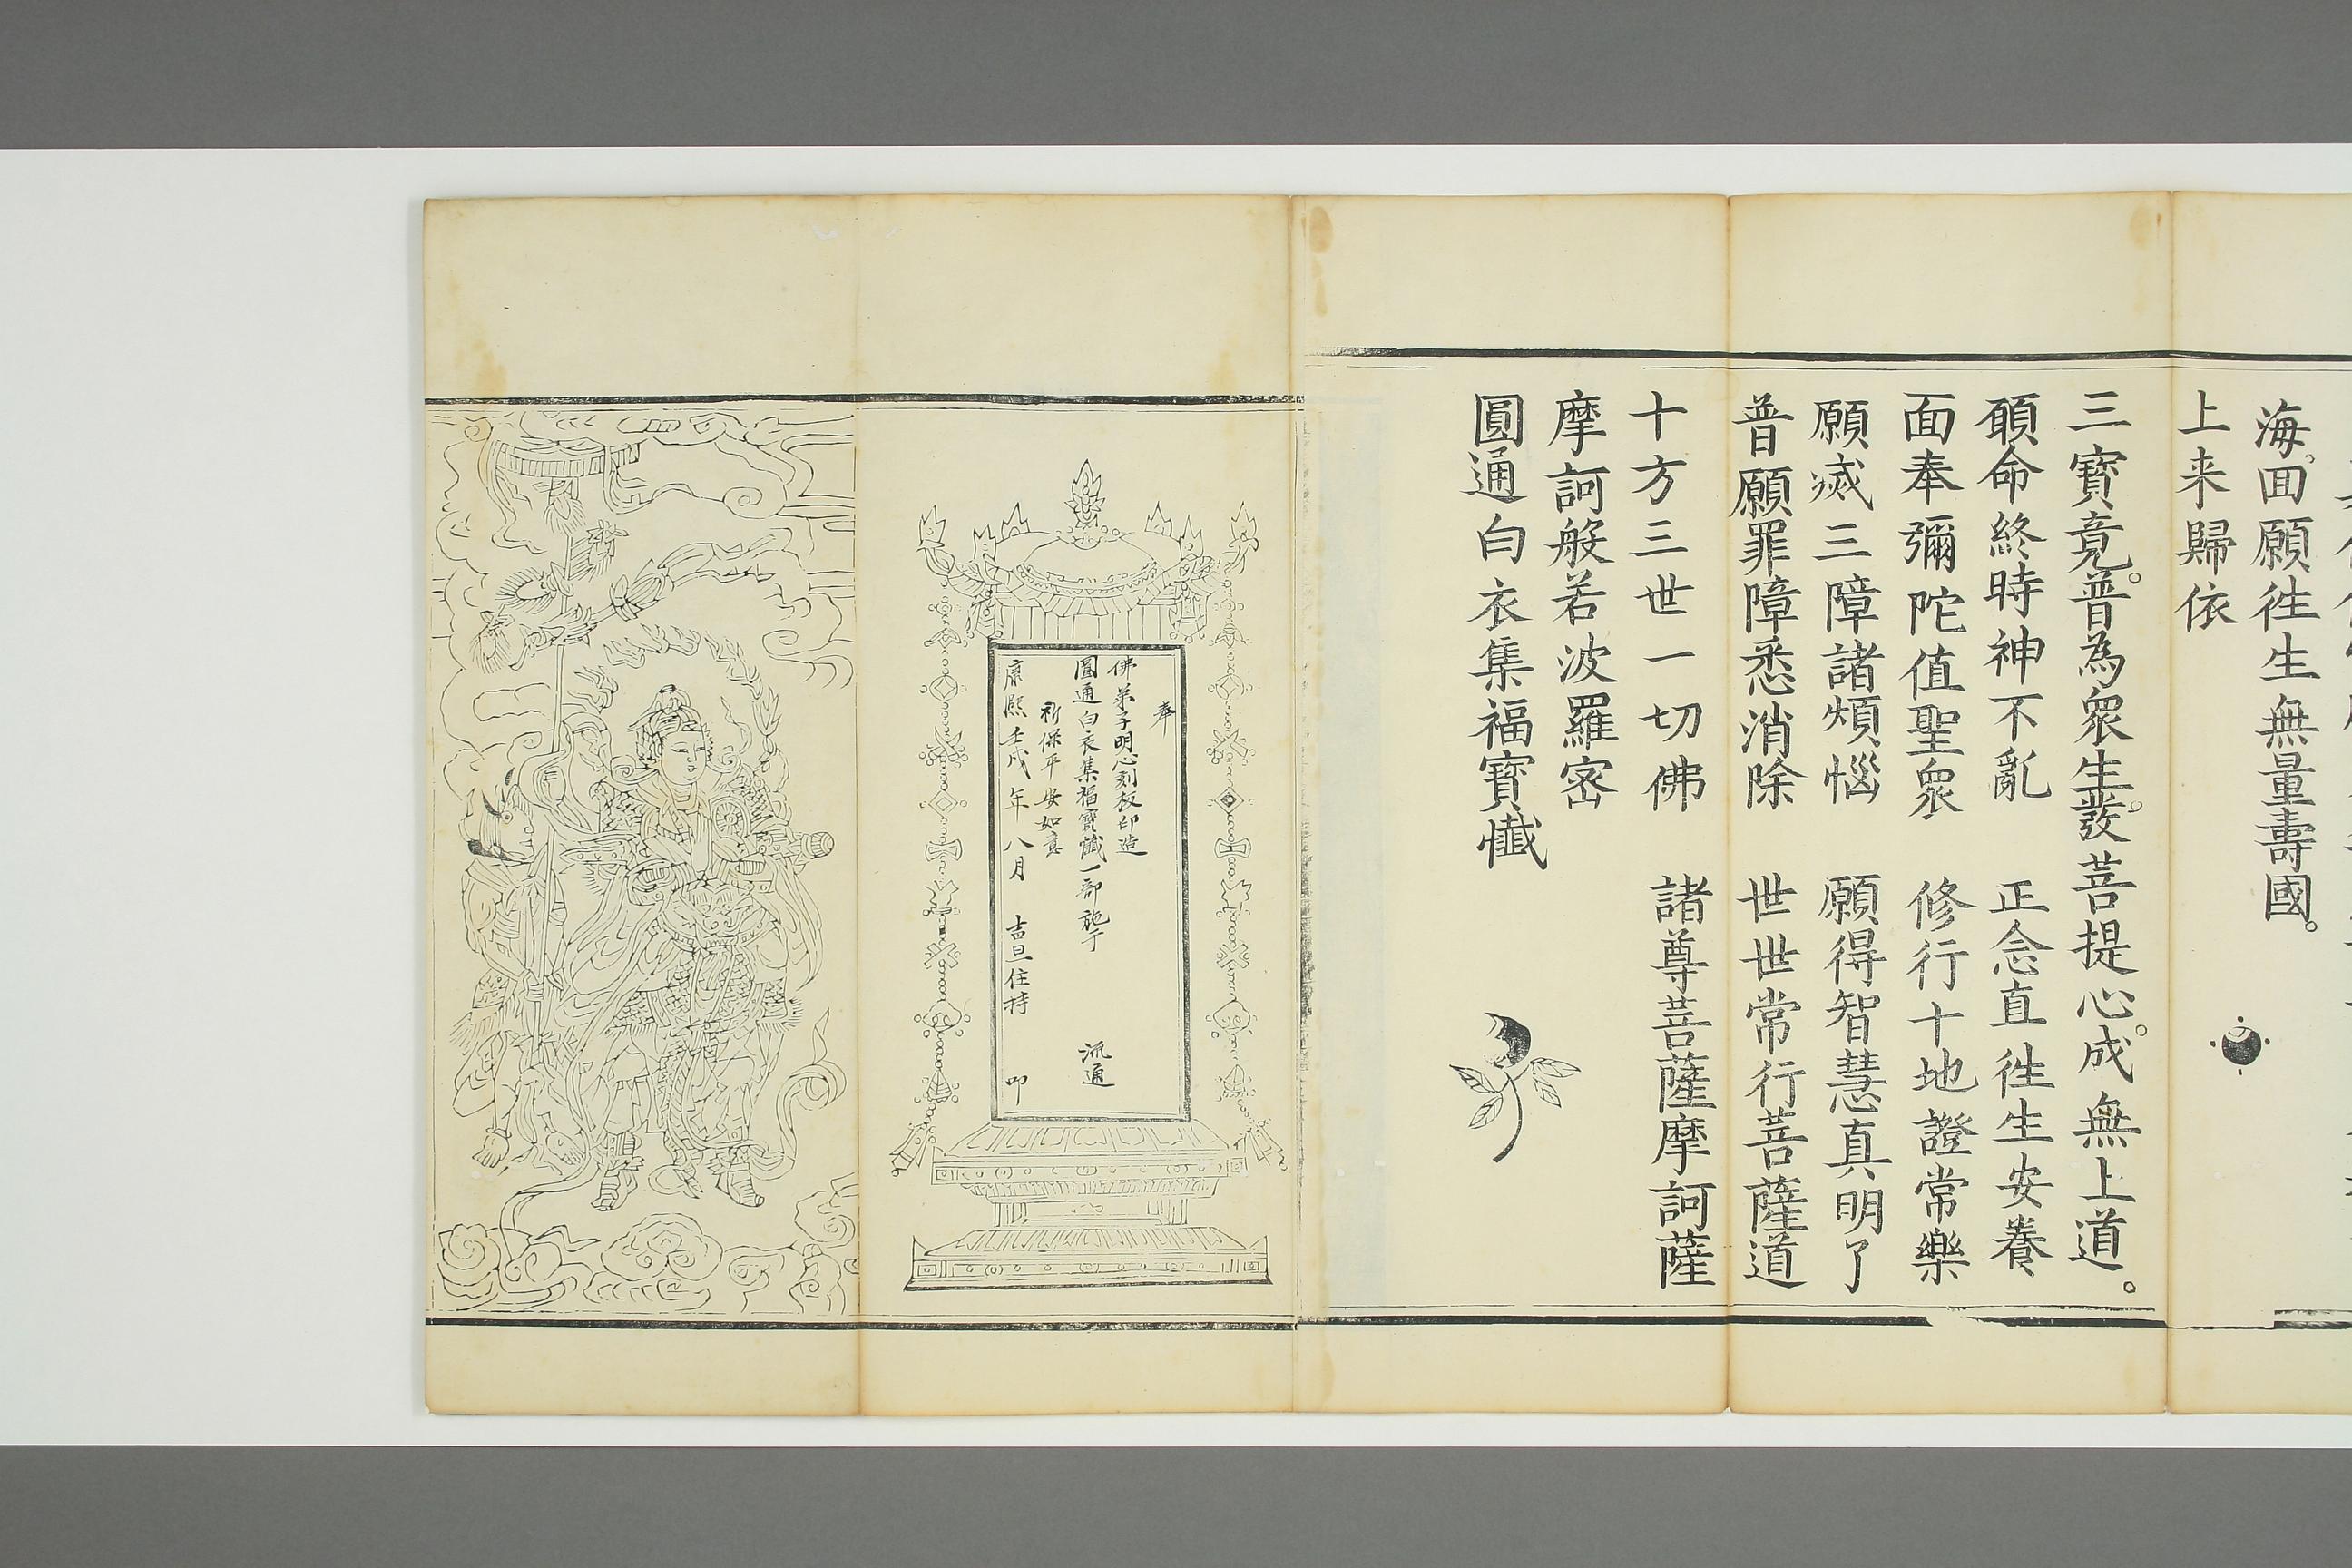 海。回願徃生無量壽國。
上来歸依
三寶竟。普為衆生。發菩提心。成無上道。
願命終時神不亂　正念直徃生安養
面奉彌陀值聖衆　修行十地證常樂
願滅三障諸煩惱　願得智慧真明了
普願罪障悉消除　世世常行菩薩道
十方三世一切佛　諸尊菩薩摩訶薩
摩訶般若波羅宻
圓通白衣集福寳懺
奉
佛弟子明心刻板印造
圓通白衣集福寶懺一部施于　流通
祈保平安如意
康熙壬戌年八月　吉旦住持　叩